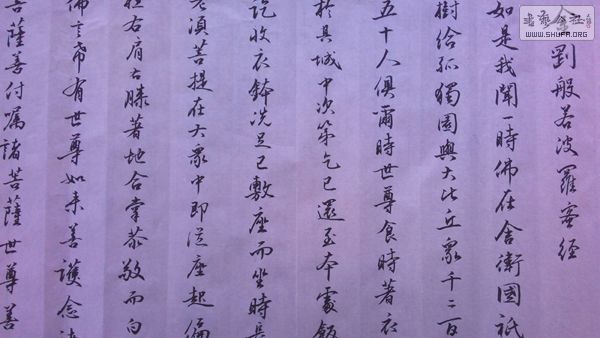 金剛般若波羅蜜经
如是我聞一時佛在舍衛國祇
樹给孤獨園與大比丘衆千二百
五十人俱爾時世尊食時著衣
於其城中次第乞已還至本處飯
訖收衣鉢洗足已敷座而坐時長
老須菩提在大衆中即從座起偏
袒右肩右膝著地合掌恭敬而白
佛言希有世尊如来善護念諸
菩薩善付嘱諸菩薩世尊善
WWW.SHUFA.ORG